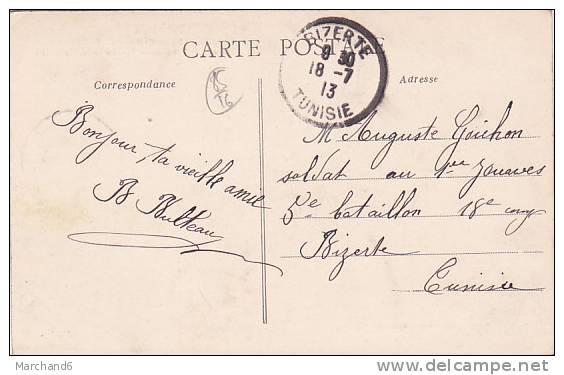 CARTE POSTALE
BIZERTE
8 30
18 -7
13
TUNISIE
Correspondance
Adresse
Bonjour, ta vieille amie
B
M Auguste Guihon
soldat au 1er Zouaves
5e bataillon 18e
Bizerte
Tunisie
Marchand6
http://www.delcampe.net